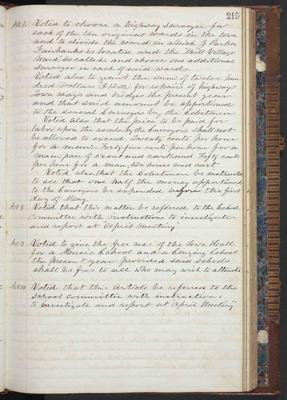 219
Art. 7. Voted to choose a highway surveyor for
each of the ten original wards in the town
and to divide the ward in which J. Parker
Fairbanks is located and the Mill Village
Ward so called and choose one additional
Surveyor in each of said wards.
Voted also to grant the sum of twelve hun
dred dollars ($1200) for repairs of highways
town ways and bridges the present year
and that said amount be apportioned
to the several Surveyors by the Selectmen.
Voted also that the price to be paid for
labor upon the roads by the Surveyors shall not
be allowed to exceed Twenty cents per hour
for a man. Forty five cents per hour for a
man, pair of oxen and cart and Fifty cents
per hour for a man, two horses and cart.
Voted also that the Selectmen be instructed
to see that one half the money apportioned
to the Surveyors be expended before the first
day of May.
Art 8 Voted that this matter be referred to the School
Committee with instructions to investigate
and report at April Meeting
Art 9 Voted to give the free use of the Town Hall
for a Music School and a Singing School
the present year provided said schools
shall be free to all who may wish to attend
Art 10 Voted that this Article be referred to the
School Committee with instructions
to investigate and report at April Meeting